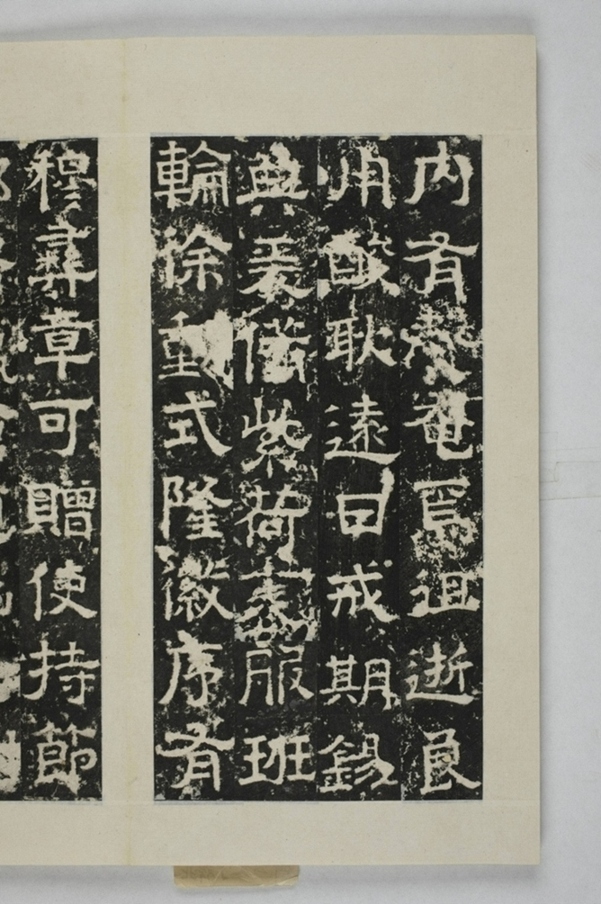 内有聲奄焉徂逝良
用酸耿遠日戒期錫
典爰備紫荷袞服班
輪徐動式隆徽序有
穆彝章可贈使持節